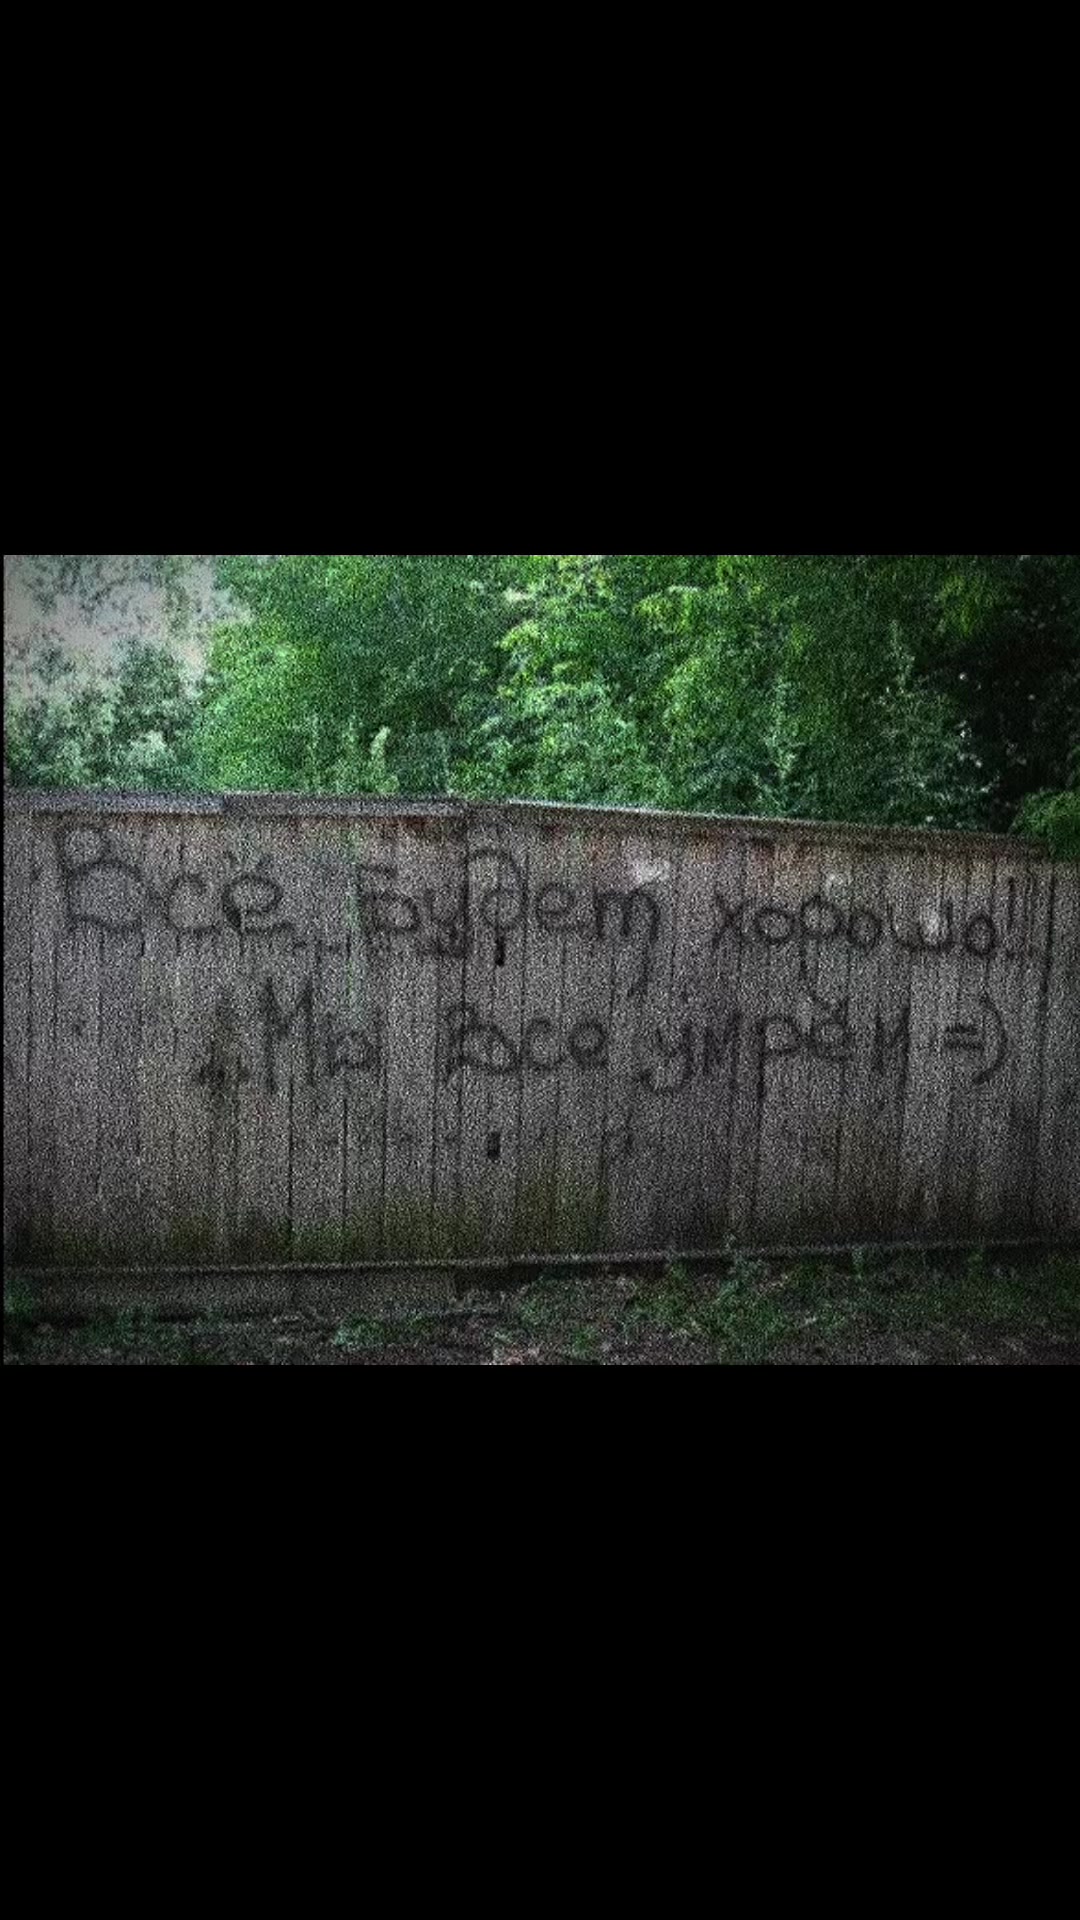 Всё будет хорошо!!
Мы все умрём =)